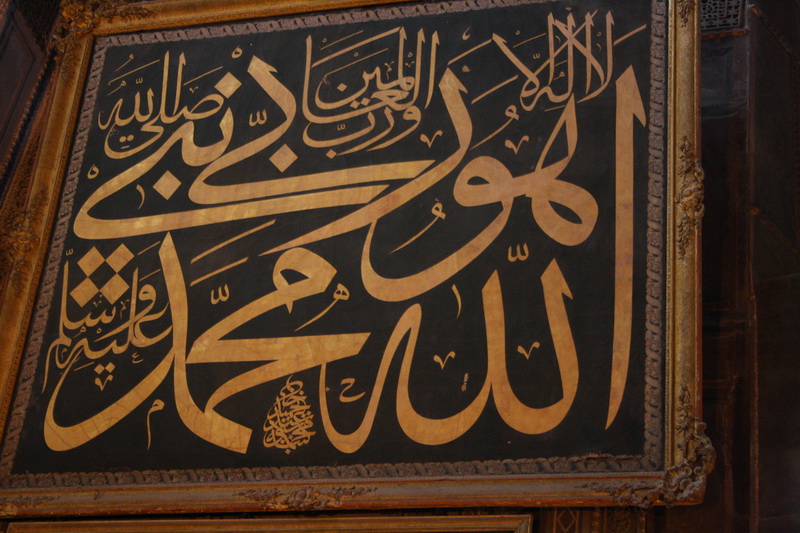 لا اله الا
هو
الله ربي
ورب العالمين
محمد نبي
صلى الله
عليه وسلم